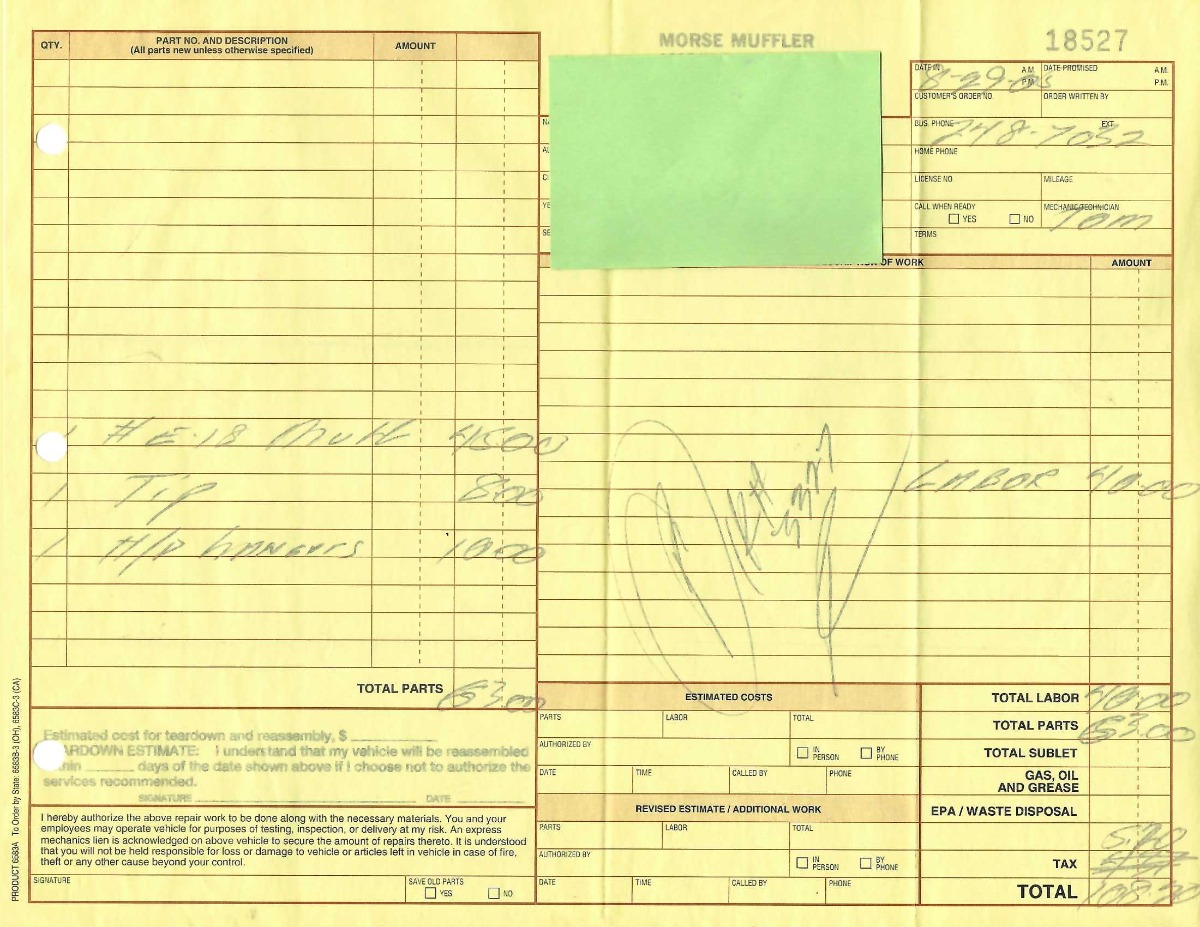 MORSE MUFFLER
18527
QTY. PART NO. AND DESCRIPTION AMOUNT
(All parts new unless otherwise specified)
DATE IN 8-29-05 A.M. P.M. DATE PROMISED A.M. P.M.
CUSTOMER'S ORDER NO. ORDER WRITTEN BY
BUS. PHONE 248-7032 EXT.
HOME PHONE
LICENSE NO. MILEAGE
CALL WHEN READY YES NO MECHANIC/TECHNICIAN Tom
TERMS
OF WORK AMOUNT
1 #E-18 Muff 45.00
1 Tip 8.00
1 H/D HANGERS 10.00
LABOR 40.00
TOTAL PARTS 63.00
Estimated cost for teardown and reassembly, $
ARDOWN ESTIMATE: I understand that my vehicle will be reassembled
days of the date shown above if I choose not to authorize the
services recommended.
SIGNATURE DATE
I hereby authorize the above repair work to be done along with the necessary materials. You and your
employees may operate vehicle for purposes of testing, inspection, or delivery at my risk. An express
mechanics lien is acknowledged on above vehicle to secure the amount of repairs thereto. It is understood
that you will not be held responsible for loss or damage to vehicle or articles left in vehicle in case of fire,
theft or any other cause beyond your control.
SIGNATURE SAVE OLD PARTS YES NO
ESTIMATED COSTS
PARTS LABOR TOTAL
AUTHORIZED BY IN PERSON BY PHONE
DATE TIME CALLED BY PHONE
REVISED ESTIMATE / ADDITIONAL WORK
PARTS LABOR TOTAL
AUTHORIZED BY IN PERSON BY PHONE
DATE TIME CALLED BY PHONE
TOTAL LABOR 40.00
TOTAL PARTS 63.00
TOTAL SUBLET
GAS, OIL
AND GREASE
EPA / WASTE DISPOSAL
5.20
TAX
TOTAL 108.20
PRODUCT 6583A To Order by State: 6583B-3 (OH), 6583C-3 (CA)